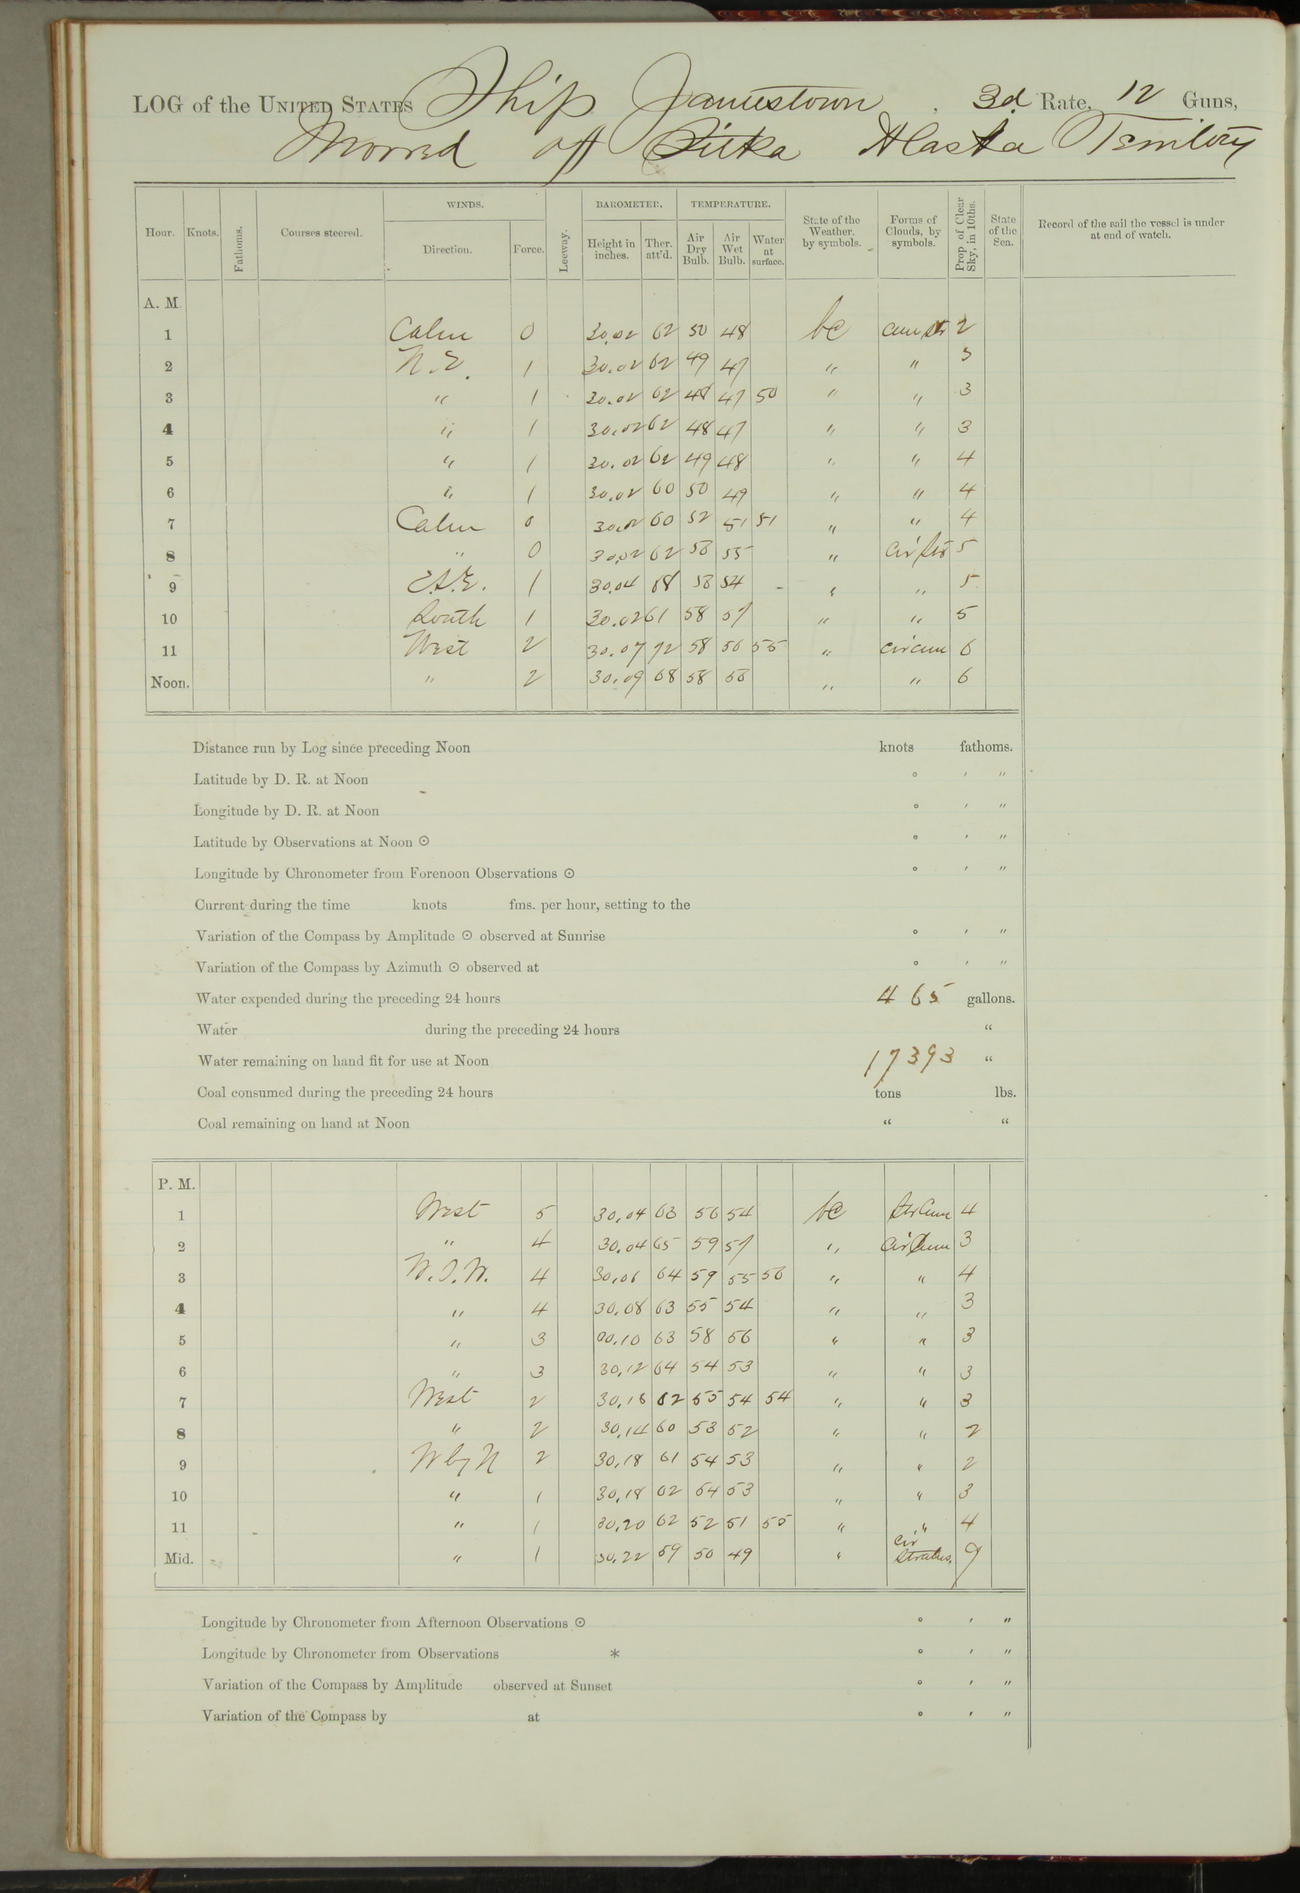 LOG of the UNITED STATES Ship Jamestown, 3d Rate, 12 Guns,
Moored off Sitka Alaska Territory
Hour. Knots. Fathoms. Courses steered. WINDS. Direction. Force. Leeway. BAROMETER. Height in inches. Ther. att'd. TEMPERATURE. Air Dry Bulb. Air Wet Bulb. Water at surface. State of the Weather. by symbols. Forms of Clouds, by symbols. Prop of Clear Sky, in 10ths. State of the Sea. Record of the sail the vessel is under at end of watch.
A. M
1 Calm 0 30.02 62 50 48 bc cum str 2
2 N.E. 1 30.02 62 49 47 " " 3
3 " 1 30.02 62 48 47 50 " " 3
4 " 1 30.02 62 48 47 " " 3
5 " 1 30.02 62 49 48 " " 4
6 " 1 30.02 60 50 49 " " 4
7 Calm 0 30.02 60 52 51 51 " " 4
8 " 0 30.02 62 58 55 " cir str 5
9 E.S.E. 1 30.04 58 54 " " 5
10 South 1 30.02 61 58 57 " " 5
11 West 2 30.07 72 58 56 55 " cir cum 6
Noon. " 2 30.09 68 58 " " 6
Distance run by Log since preceding Noon knots fathoms.
Latitude by D. R. at Noon ° ′ ″
Longitude by D. R. at Noon ° ′ ″
Latitude by Observations at Noon ☉ ° ′ ″
Longitude by Chronometer from Forenoon Observations ☉ ° ′ ″
Current during the time knots fms. per hour, setting to the
Variation of the Compass by Amplitude ☉ observed at Sunrise ° ′ ″
Variation of the Compass by Azimuth ☉ observed at ° ′ ″
Water expended during the preceding 24 hours 465 gallons.
Water during the preceding 24 hours "
Water remaining on hand fit for use at Noon 17393 "
Coal consumed during the preceding 24 hours tons lbs.
Coal remaining on hand at Noon " "
P. M.
1 West 5 30.04 63 56 54 bc str cum 4
2 " 4 30.04 65 59 57 " cir cum 3
3 W.S.W. 4 30.06 64 59 55 56 " " 4
4 " 4 30.08 63 55 54 " " 3
5 " 3 30.10 63 58 56 " " 3
6 " 3 30.12 64 54 53 " " 3
7 West 2 30.16 62 55 54 54 " " 3
8 " 2 30.14 60 53 52 " " 2
9 W by N 2 30.18 61 54 53 " " 2
10 " 1 30.18 62 54 53 " " 3
11 " 1 30.20 62 52 51 55 " " 4
Mid. " 1 30.22 59 50 49 " cir stratus. 9
Longitude by Chronometer from Afternoon Observations ☉ ° ′ ″
Longitude by Chronometer from Observations * ° ′ ″
Variation of the Compass by Amplitude observed at Sunset ° ′ ″
Variation of the Compass by at ° ′ ″